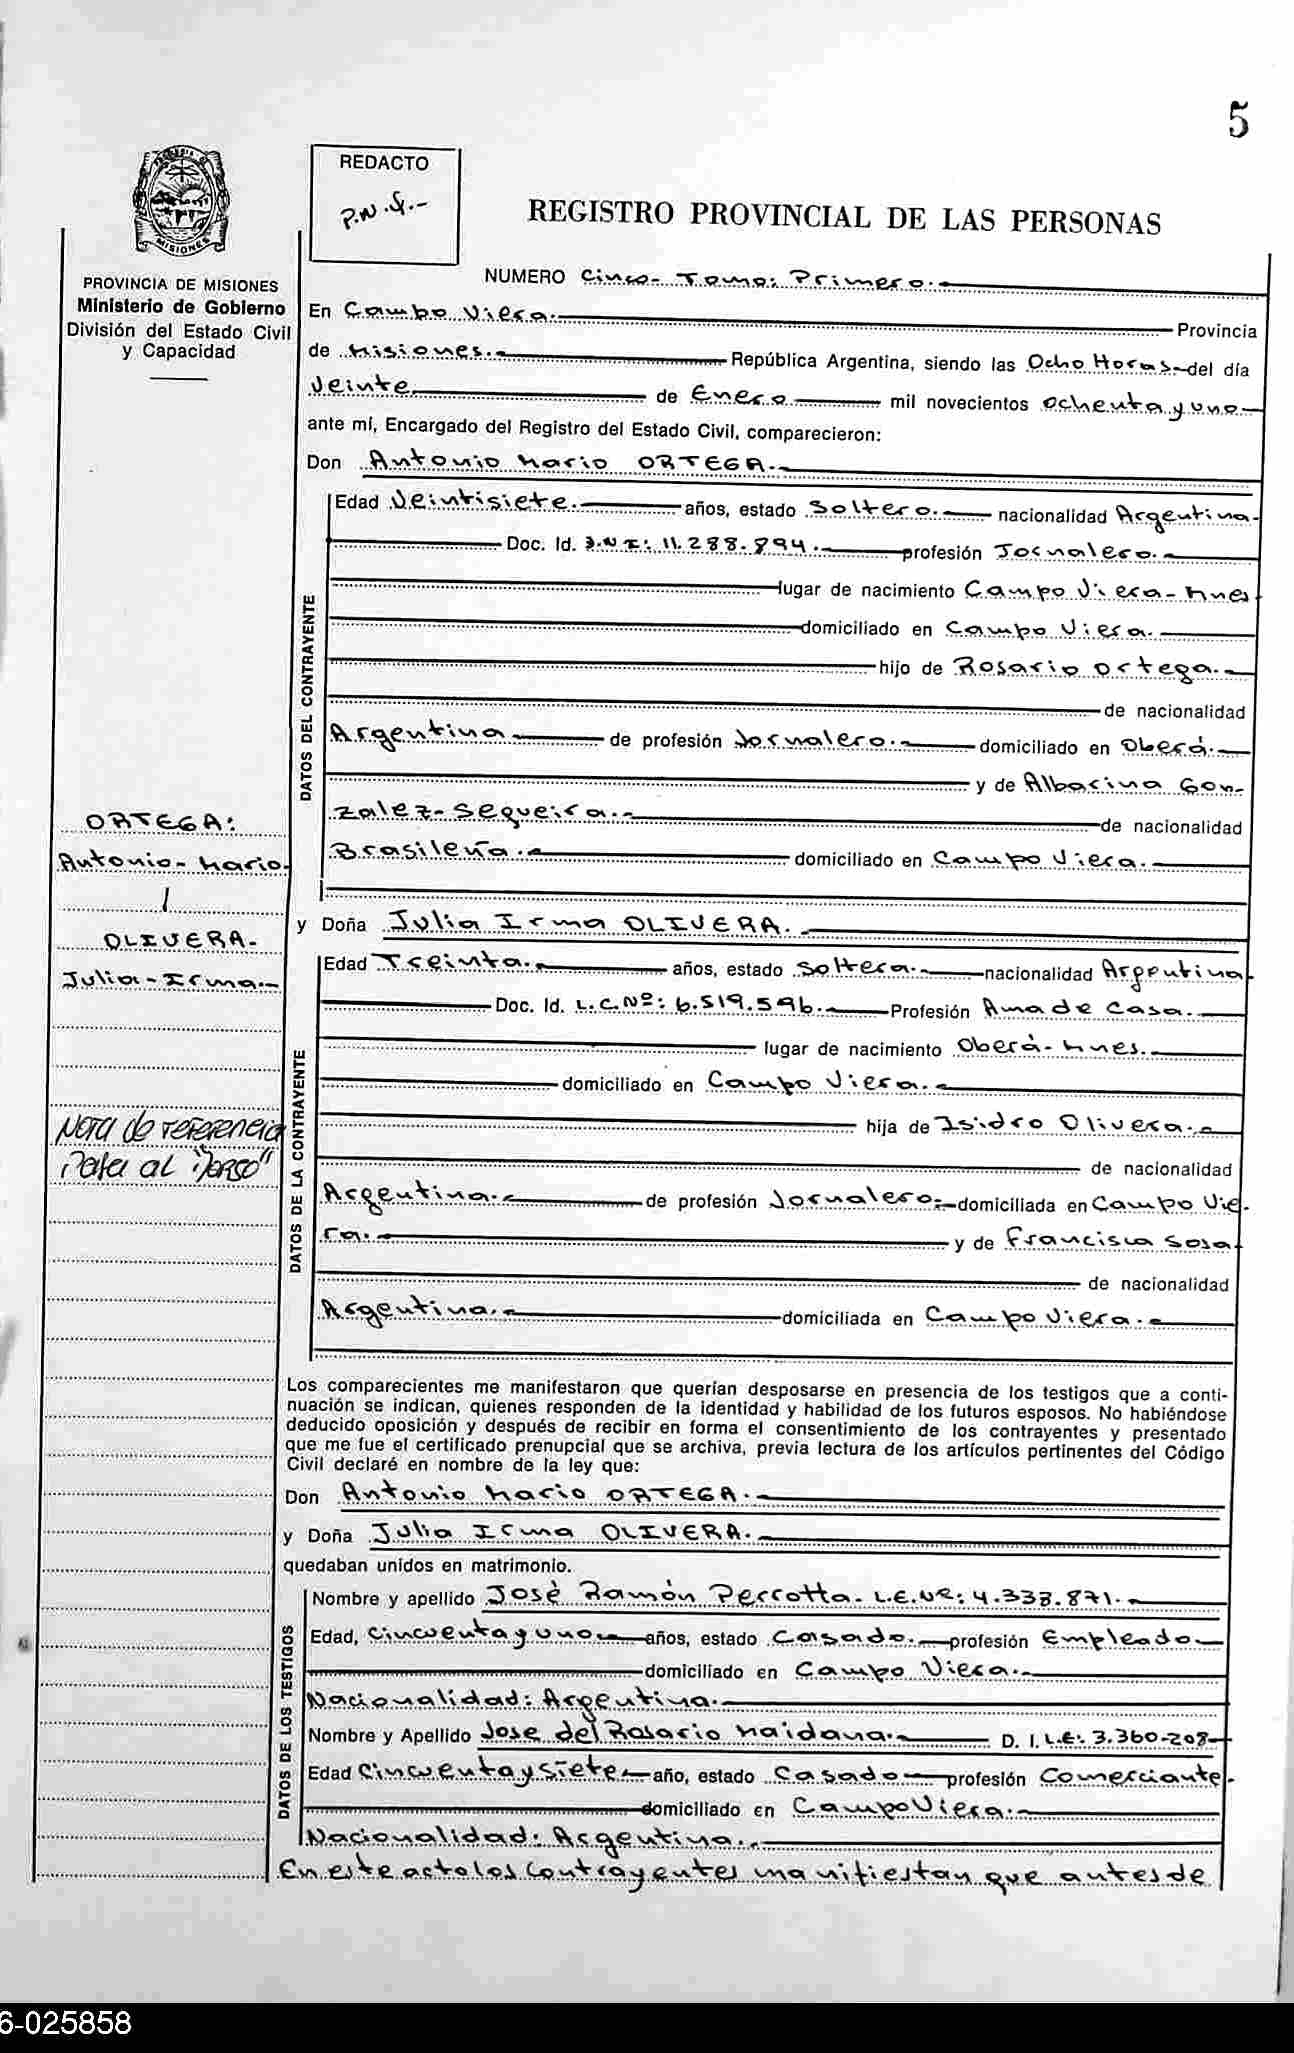 5
PROVINCIA DE
MISIONES
REDACTO
P.N.
REGISTRO PROVINCIAL DE LAS PERSONAS
PROVINCIA DE MISIONES
Ministerio de Gobierno
División del Estado Civil
y Capacidad
NUMERO Cinco- Tomo: Primero.-
En Campo Viera.- Provincia
de Misiones.- República Argentina, siendo las Ocho Horas- del día
Veinte de Enero mil novecientos ochenta y uno-
ante mí, Encargado del Registro del Estado Civil, comparecieron:
Don Antonio Mario ORTEGA.-
DATOS DEL CONTRAYENTE
Edad Veintisiete.- años, estado Soltero.- nacionalidad Argentina-
Doc. Id. D.N.I: 11.288.894.- profesión Jornalero.-
lugar de nacimiento Campo Viera- Mnes-
domiciliado en Campo Viera.-
hijo de Rosario Ortega.-
de nacionalidad
Argentina- de profesión Jornalero.- domiciliado en Oberá.-
y de Albarina Gon-
zalez- Sequeira.- de nacionalidad
Brasileña.- domiciliado en Campo Viera.-
ORTEGA:
Antonio- Mario-
/
OLIVERA-
Julia- Irma-
Nota de referencia
Pasa al "Dorso"
y Doña Julia Irma OLIVERA.-
DATOS DE LA CONTRAYENTE
Edad Treinta.- años, estado Soltera.- nacionalidad Argentina-
Doc. Id. L.C.Nº: 6.519.596.- Profesión Ama de Casa.-
lugar de nacimiento Oberá- Mnes.-
domiciliado en Campo Viera.-
hija de Isidro Olivera.-
de nacionalidad
Argentina.- de profesión Jornalero.- domiciliada en Campo Vie-
ra.- y de Francisca Sosa-
de nacionalidad
Argentina.- domiciliada en Campo Viera.-
Los comparecientes me manifestaron que querían desposarse en presencia de los testigos que a conti-
nuación se indican, quienes responden de la identidad y habilidad de los futuros esposos. No habiéndose
deducido oposición y después de recibir en forma el consentimiento de los contrayentes y presentado
que me fue el certificado prenupcial que se archiva, previa lectura de los artículos pertinentes del Código
Civil declaré en nombre de la ley que:
Don Antonio Mario ORTEGA.-
y Doña Julia Irma OLIVERA.-
quedaban unidos en matrimonio.
DATOS DE LOS TESTIGOS
Nombre y apellido José Ramón Perrotta- L.E.Nº: 4.338.871.-
Edad, Cincuenta y uno- años, estado Casado.- profesión Empleado-
domiciliado en Campo Viera.-
Nacionalidad: Argentina.-
Nombre y Apellido Jose del Rosario Maidana.- D. I. L.E: 3.360-208-
Edad Cincuenta y siete- año, estado Casado- profesión Comerciante-
domiciliado en Campo Viera.-
Nacionalidad: Argentina.-
En este acto los Contrayentes manifiestan que antes de
6-025858